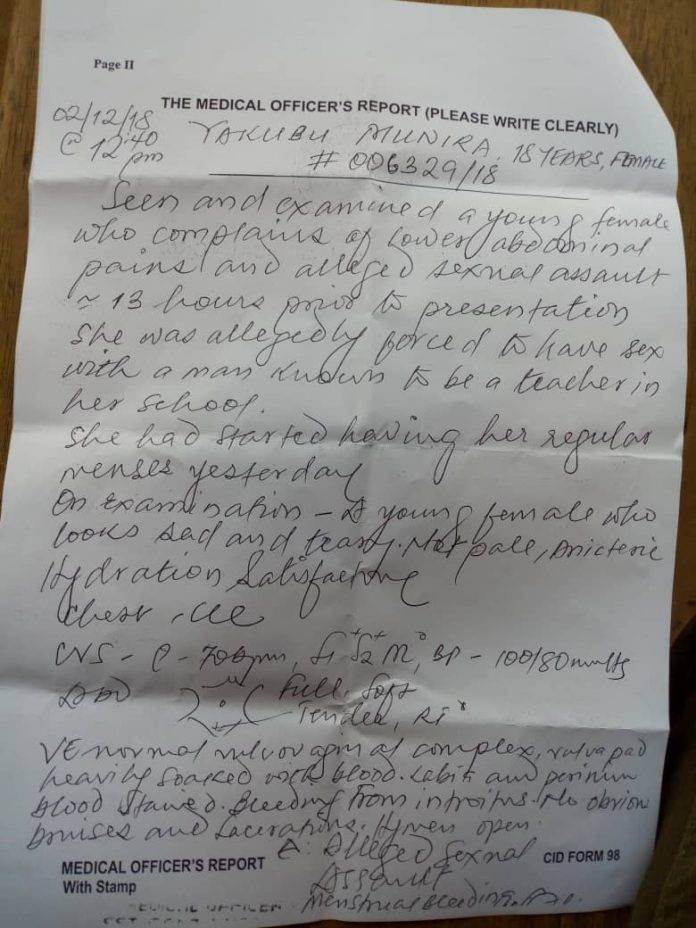 Page II
THE MEDICAL OFFICER'S REPORT (PLEASE WRITE CLEARLY)
02/12/18
@ 12:40
pm
YAKUBU MUNIRA, 18 YEARS, FEMALE
# 006329/18
Seen and examined a young female
who complains of lower abdominal
pains and alleged sexual assault
≈ 13 hours prior to presentation
She was allegedly forced to have sex
with a man known to be a teacher in
her school.
She had started having her regular
menses yesterday
On Examination - A young female who
looks sad and teary. Not pale, Anicteric
Hydration Satisfactory
Chest
CVS - P - 70bpm, S1+ S2+ M°, BP - 100/80mmHg
ABD Full, Soft
Tender,
VE normal vulvovaginal complex, vulva pad
heavily soaked with blood. Labia and perineum
blood stained. Bleeding from introitus. No obvious
bruises and lacerations. Hymen open.
Alleged Sexual
Assault
Menstrual bleeding.
MEDICAL OFFICER'S REPORT
With Stamp
CID FORM 98
MEDICAL OFFICER